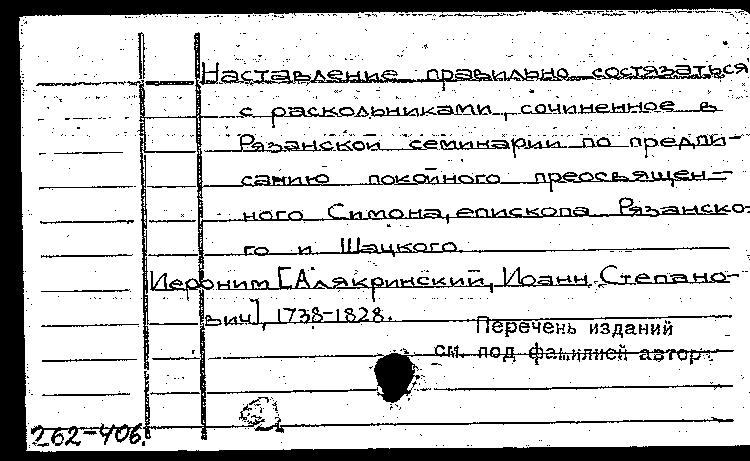 Наставление правильно состязаться
с раскольниками, сочиненное в
Рязанской семинарии по предпи-
санию покойного преосвящен-
ного Симона, епископа Рязанско-
го и Шацкого.
Иероним [Алякринский, Иоанн Степано-
вич], 1738-1828.
Перечень изданий
см. под фамилией автор
262-406.